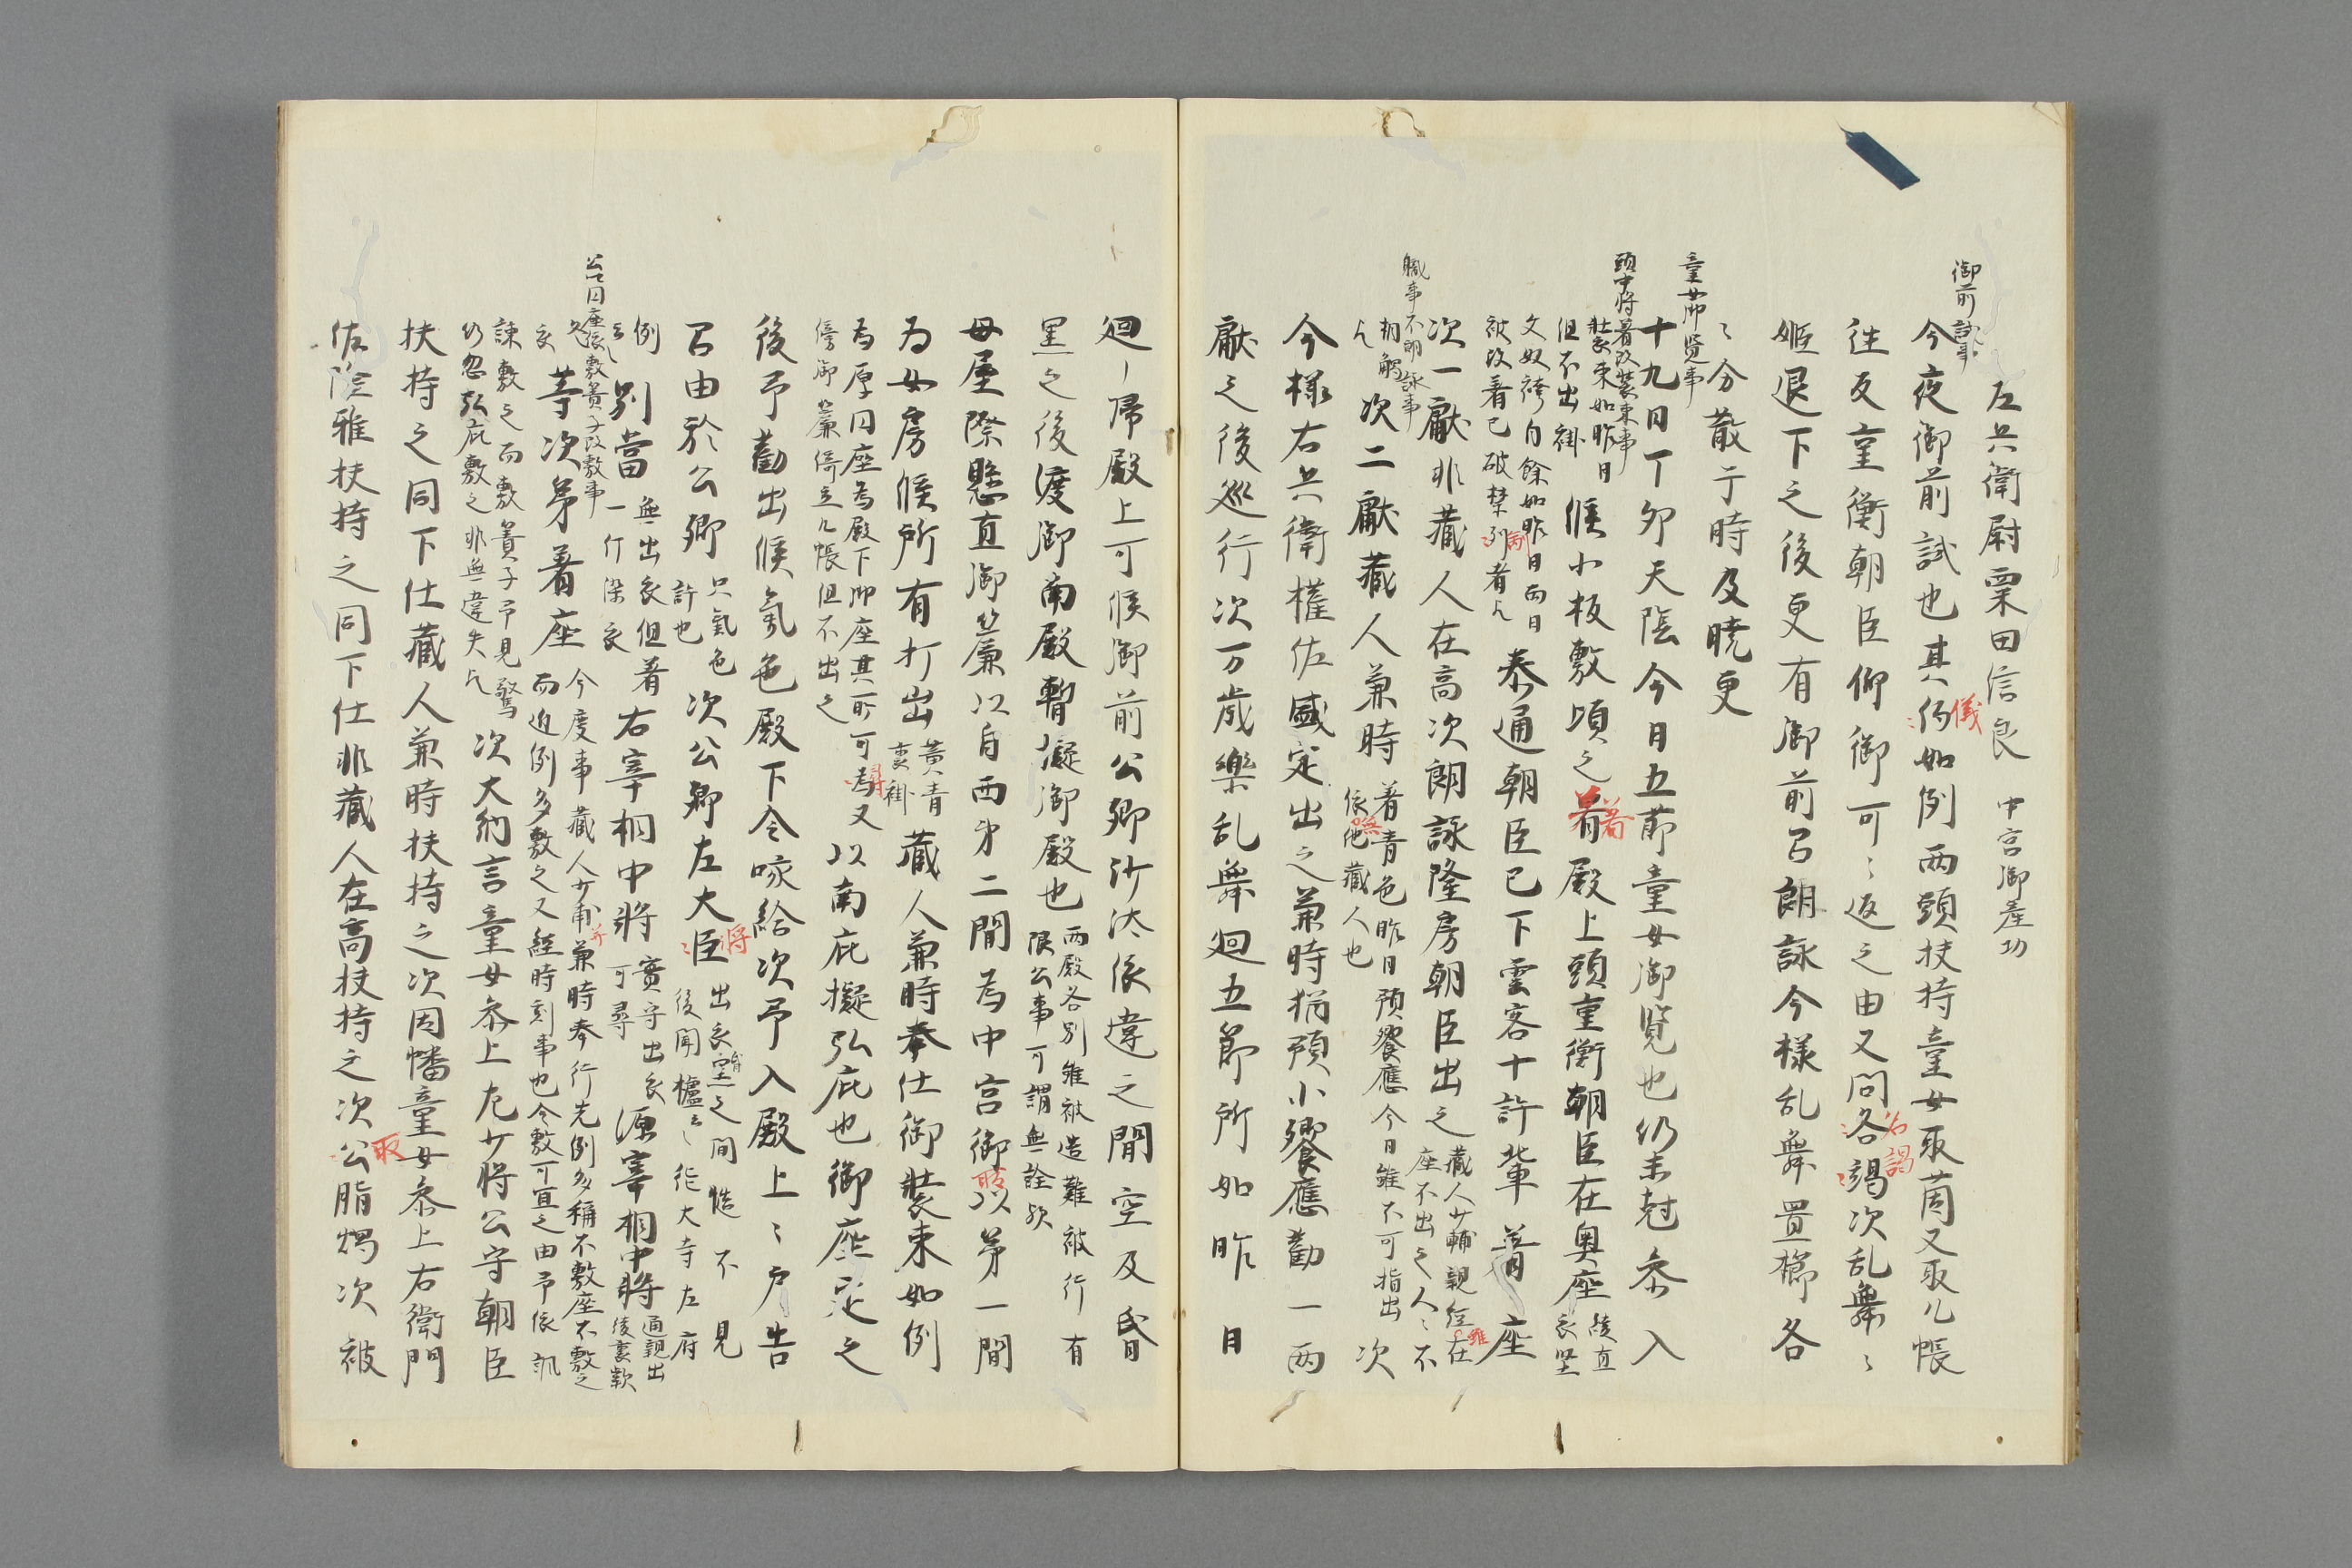 御前試事
左兵衛尉栗田信良 中宮御産功
今夜御前試也其仍儀如例両頭扶持童女取茵又取几帳
往反重衡朝臣仰御可〻返之由又問各名謁竭次乱舞〻
姫退下之後更有御前召朗詠今様乱舞置櫛各
〻分散于時及暁更
童女御覧事
十九日丁卯天陰今日五節童女御覧也仍未尅参入
頭中将著改装束事
装束如昨日
但不出褂
候小板敷頃之着著殿上頭重衡朝臣在奥座
綾直
衣堅
文奴袴自餘如昨日両日
被改着已破禁制列者歟
泰通朝臣已下雲客十許輩着座
次一献非蔵人在高次朗詠隆房朝臣出之
蔵人少輔親経雖在
座不出之人〻不
職事不朗詠事
相觸
次二献蔵人兼時
着青色昨日預饗應今日雖不可指出
依無他蔵人也
次
今様右兵衛権佐盛定出之兼時猶預小饗應勸一両
献之後巡行次万歳樂乱舞廻五節所如昨日
廻〻帰殿上可候御前公卿沙汰依違之間空及昏
黒之後渡御南殿暫擬御殿也
両殿各別雖被造難被行有
限公事可謂無詮歟
母屋際懸直御簾以自西第二間為中宮御所以第一間
為女房候所有打出
黄青
裏褂
蔵人兼時奉仕御装束如例
為厚円座為殿下御座其所可尋又
傍御簾倚立几帳但不出之
以南庇擬弘庇也御座定之
後予勸出候氣色殿下令咳給次予入殿上〻戸告
召由於公卿
只氣色
許也
次公卿左大将臣
出衣昏黒之間慥不見
後聞櫨云〻徳大寺左府
例
云〻
別當
無出衣但着
一行染衣
右宰相中将
實守出衣
可尋
源宰相中将
通親出
後裏歟
公卿円座依敷簀子改敷事
等次第着座
今度事蔵人少輔并兼時奉行先例多稱不敷座不敷之
而近例多敷之又経時刻事也令敷可宜之由予依訊
諫敷之而敷簀子予見驚
仍忽弘庇敷之非無違失歟
次大納言童女参上左少将公守朝臣
扶持之同下仕蔵人兼時扶持之次因幡童女参上右衛門
佐隆雅扶持之同下仕非蔵人在高扶持之次取公脂燭次被